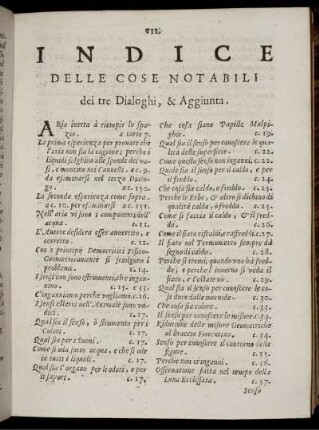 VII.
INDICE
DELLE COSE NOTABILI
dei tre Dialoghi, & Aggiunta.
ARia inetta à riempir lo spa-
zio. a carte 7.
La prima esperienza per provare che
l'aria non sia la cagione; perche i
liquidi salghino alle sponde dei va-
si, e montino nei Cannelli. a c. 9.
da esaminarsi nel terzo Dialo-
go. ac. 150.
La seconda esperienza come sopra.
ac. 10. per esaminarsi ac. 151.
Nell'aria vi sono i componenti dell'
acqua c. 11.
L'Autore desidera esser avvertito, e
corretto. c. 12.
Con i principj Democritici Fisico-
Geometricamente si sciolgono i
problemi. c. 14.
I sensi con soli istrumenti, ab e ingan-
nino. c. 15. e 33.
C'inganniamo perche vogliamo. c. 16.
I sensi esterni nell'Animale sono va-
dici. c. 17.
Qual sia il senso, ò strumento per i
Colori. c. 17.
Qual sia per i Suoni. c. 17.
Come si oda sotto acqua, e che si ode
in tutti i liquidi. c. 17.
Qual sia l'organo per li odori, e per
li sapori. c. 17.
Che cosa siano Papille Malpi-
ghie. c. 19.
Qual sia il senso per conoscere le qua-
lità delle superficie. c. 22.
Come questo senso non inganni, c. 22.
Quale sia il senso per il caldo, e per
il freddo. c. 23.
Che cosa sia caldo, e freddo. c. 23.
Perche le Erbe, & altro si dichino di
qualità calda, ò fredda. c. 25.
Come si faccia il caldo, & il fred-
do. c. 26.
Come il fiato riscaldi, e raffreddi. c. 27.
Il fiato nel Termometro sempre dà
segno di caldo. c. 28.
Perche si tremi, quando uno hà fred-
do, e perche l'inverno si veda il
fiato, e l'estate nò. c. 29.
Qual sia il senso per conoscere le co-
se dure dalle morbide. c. 30.
Che cosa sia colore. c. 33.
Senso per conoscere le misure. c. 34.
Riduzione delle misure Geometriche
al braccio Fiorentino. c. 34.
Senso per conoscere il contorno delle
figure. c. 35.
Perche non ci inganni. c. 36.
Osservazione fatta nel tempo della
Luna Ecclissata. c. 37.
Senso